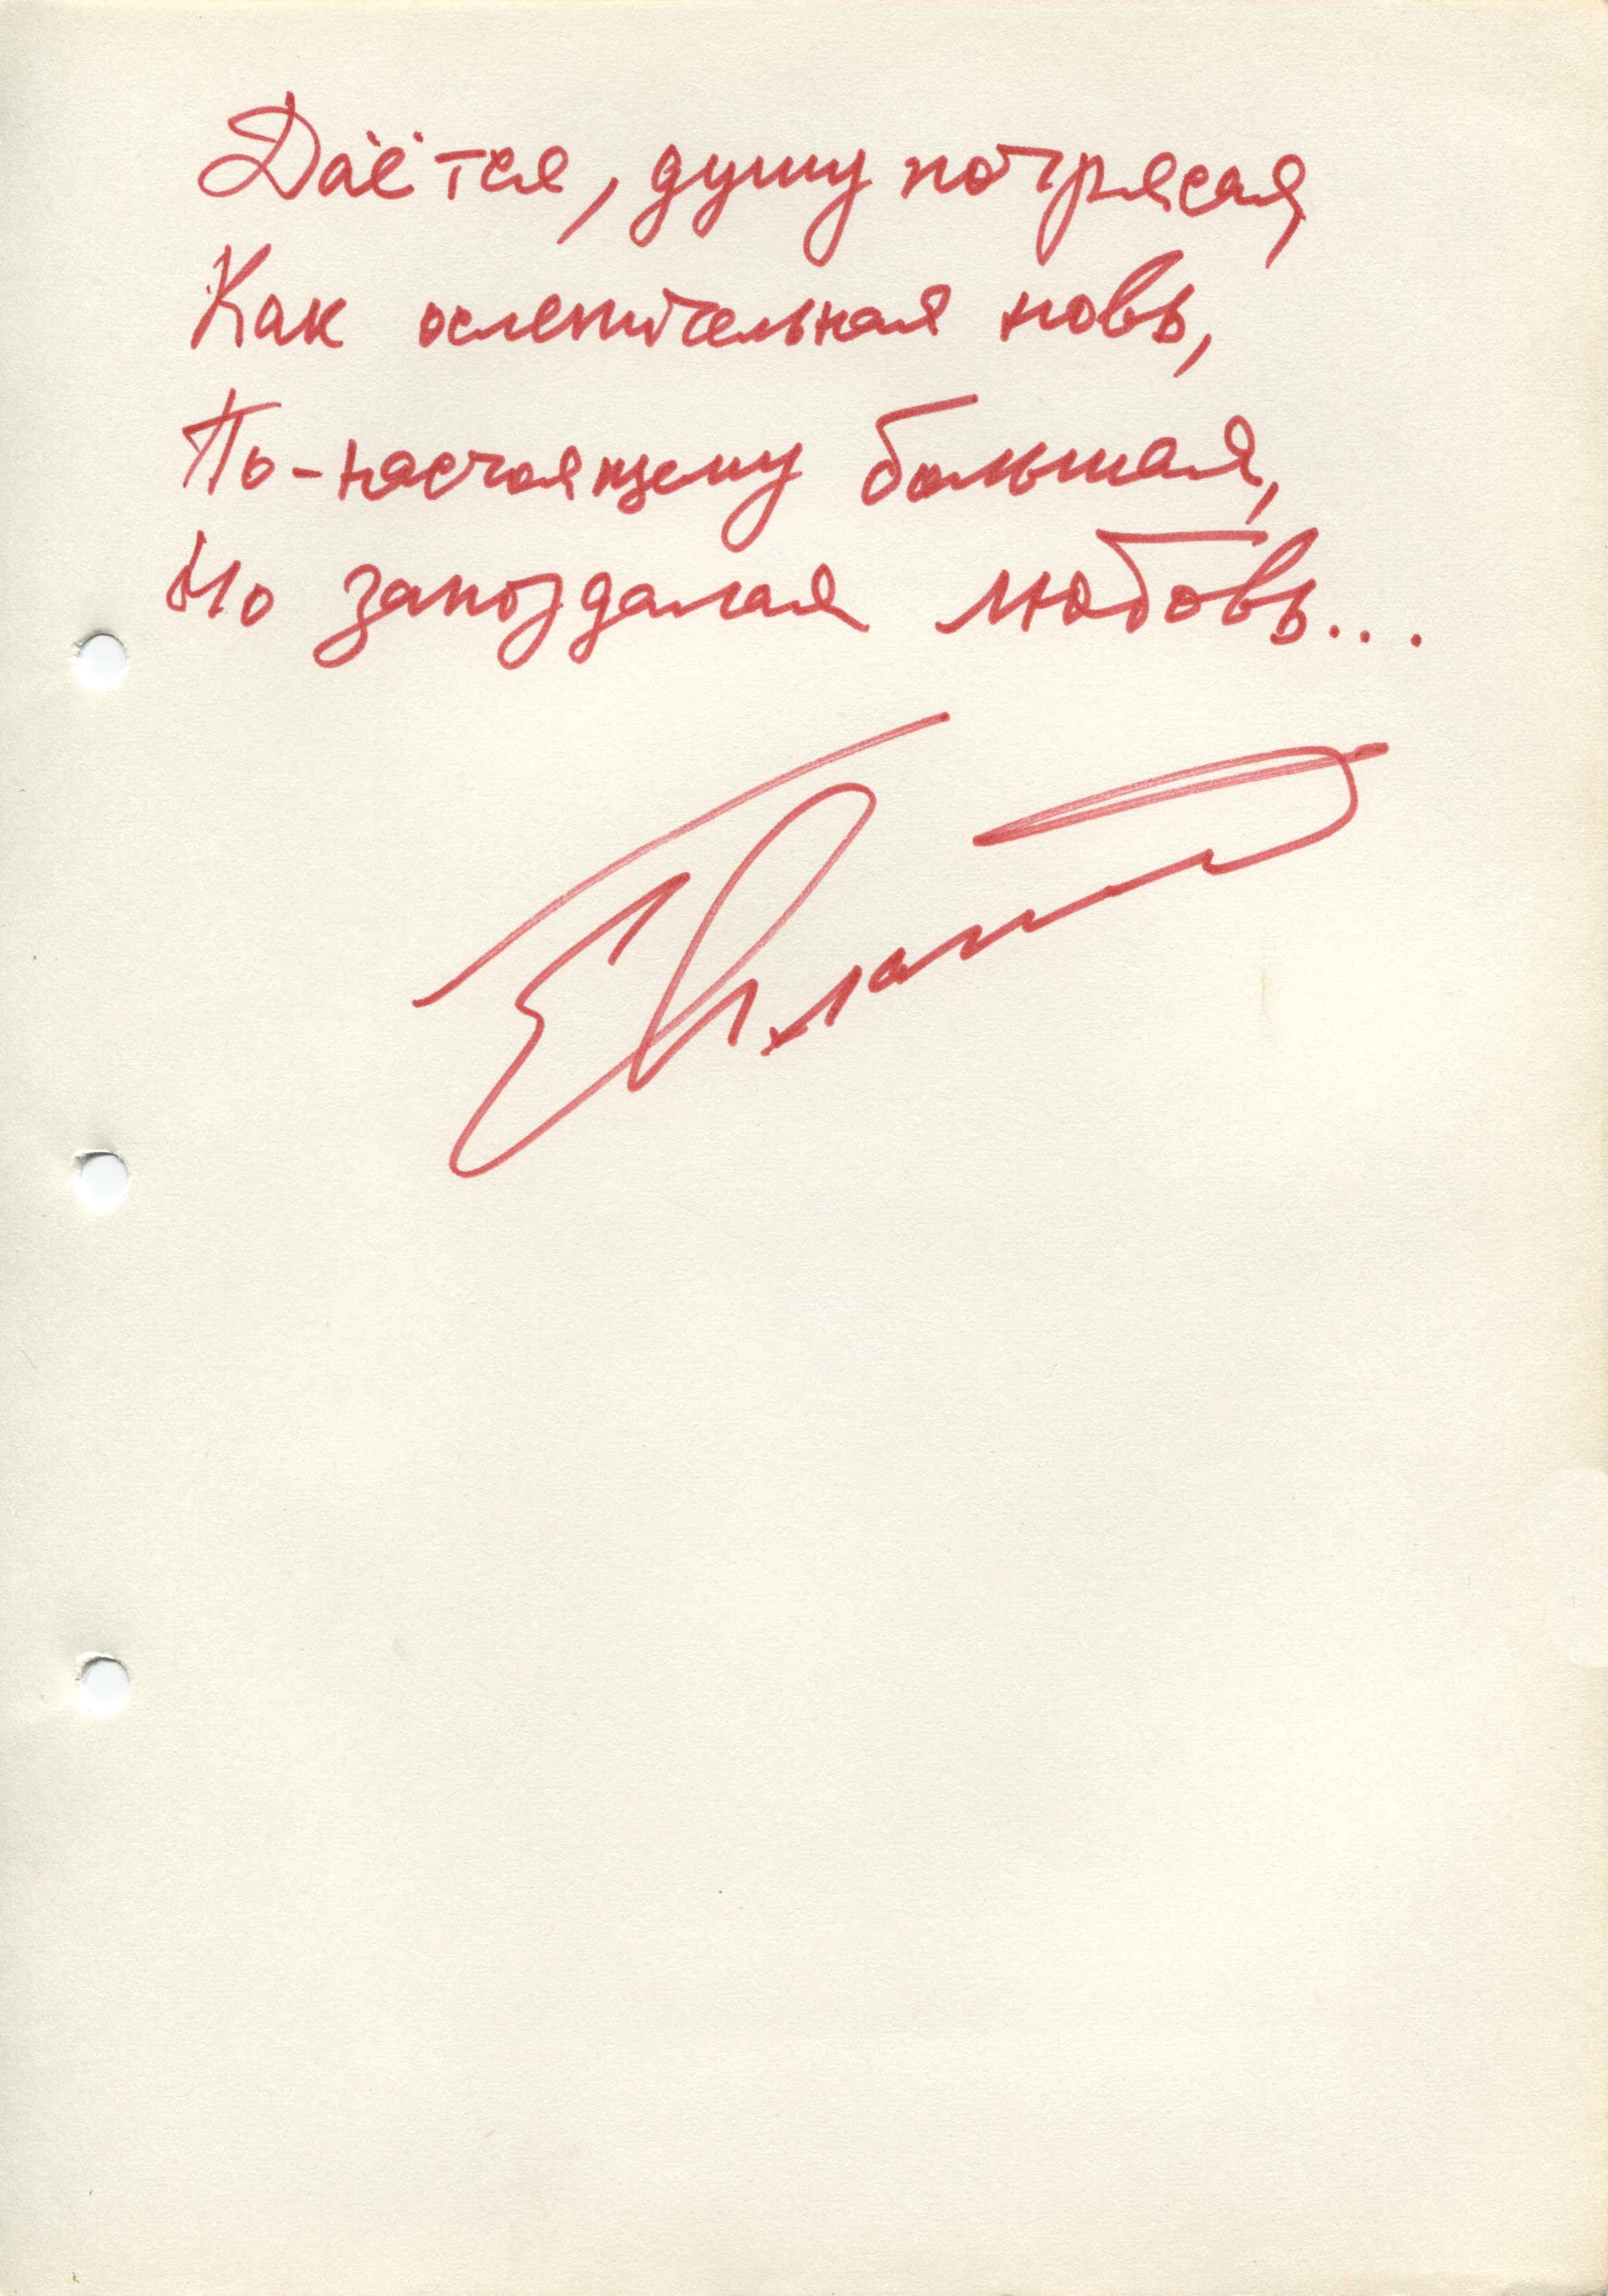 Даётся, душу потрясая,
Как ослепительная новь,
По-настоящему большая,
Но запоздалая любовь...